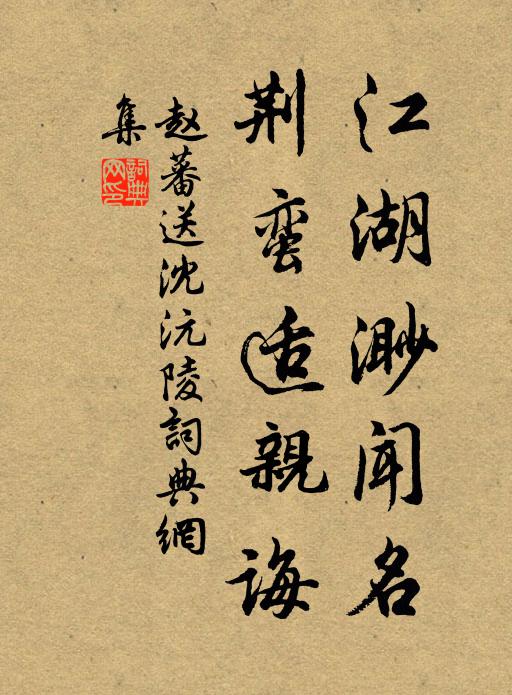 江湖渺闻名
荆蛮适親诲
赵蕃送沈沅陵詞典網
集
詞典
网印